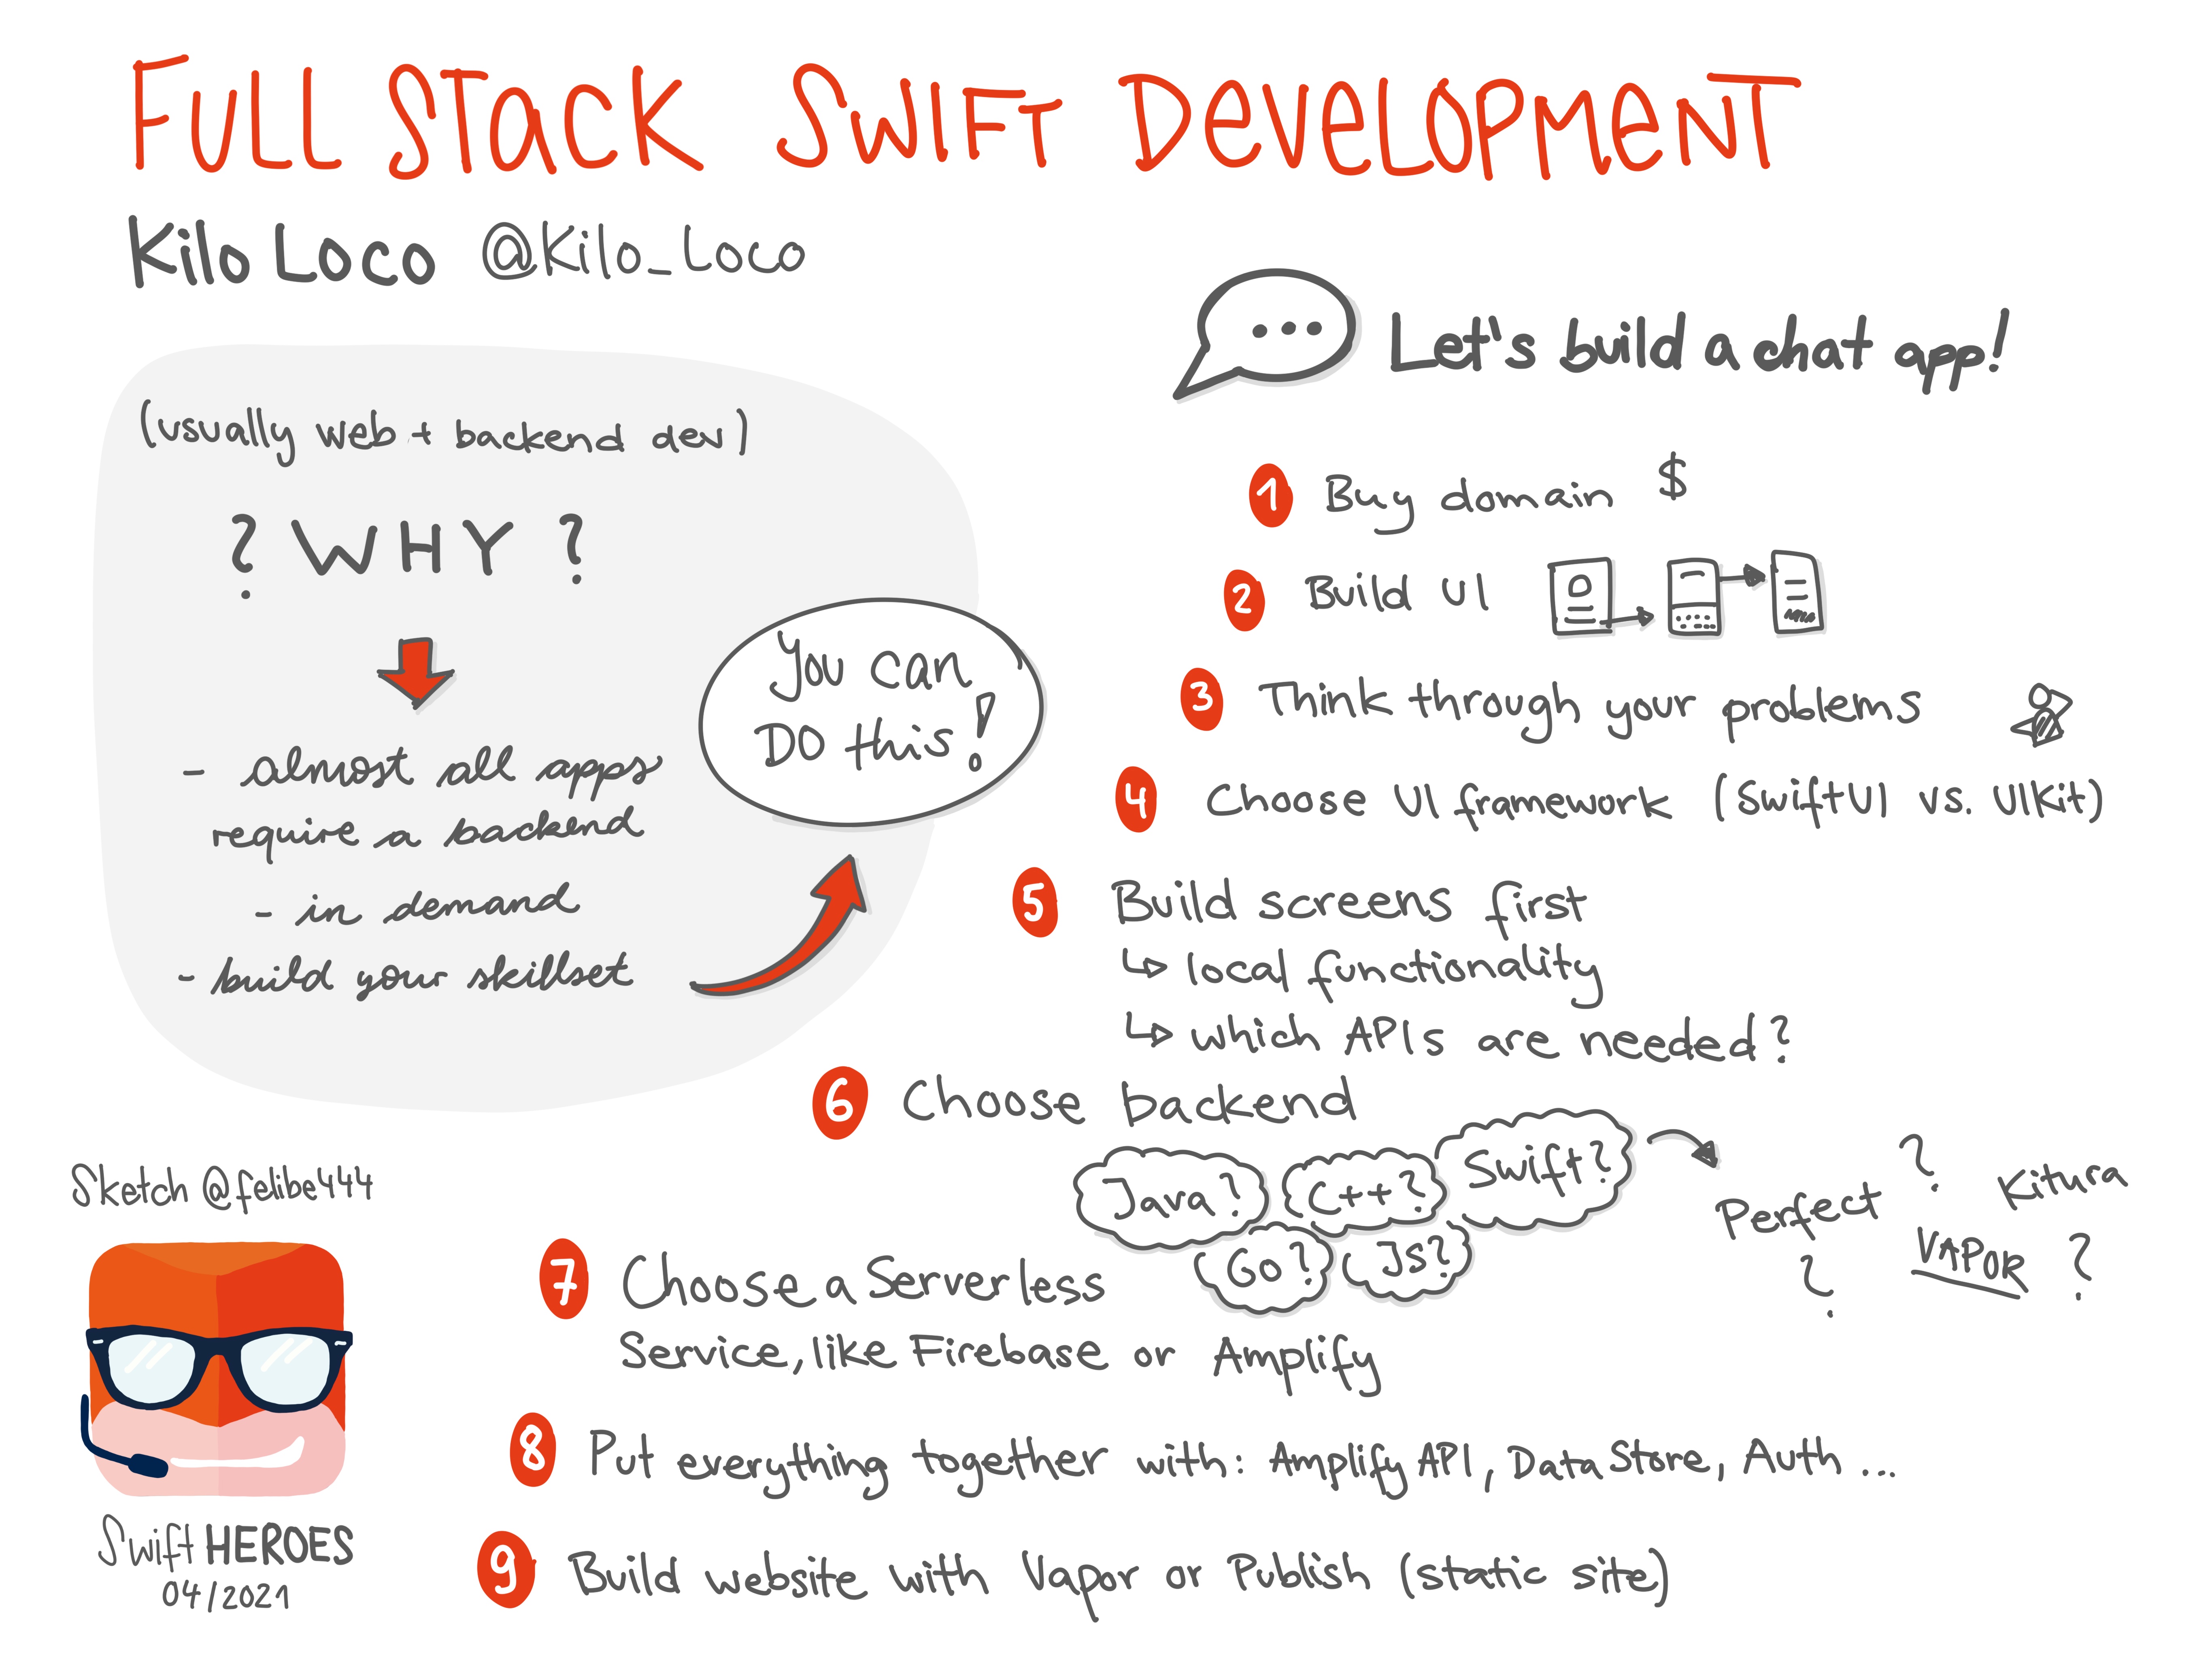 FULL STACK SWIFT DEVELOPMENT
Kilo Loco @Kilo_Loco
(usually web + backend dev)
? WHY ?
- almost all apps
require a backend
- in demand
- build your skillset
You can
DO this!
Let's build a chat app!
1 Buy domain $
2 Build UI
3 Think through your problems
4 Choose UI framework (SwiftUI vs. UIKit)
5 Build screens first
↳ local functionality
↳ which APIs are needed?
6 Choose backend
Java? C++? Swift?
Go? JS?
Perfect ? Kitura
? VAPOR ?
7 Choose a Serverless
Service, like Firebase or Amplify
8 Put everything together with: Amplify API, DataStore, Auth ...
9 Build website with Vapor or Publish (static site)
Sketch @felibe444
Swift HEROES
04/2021